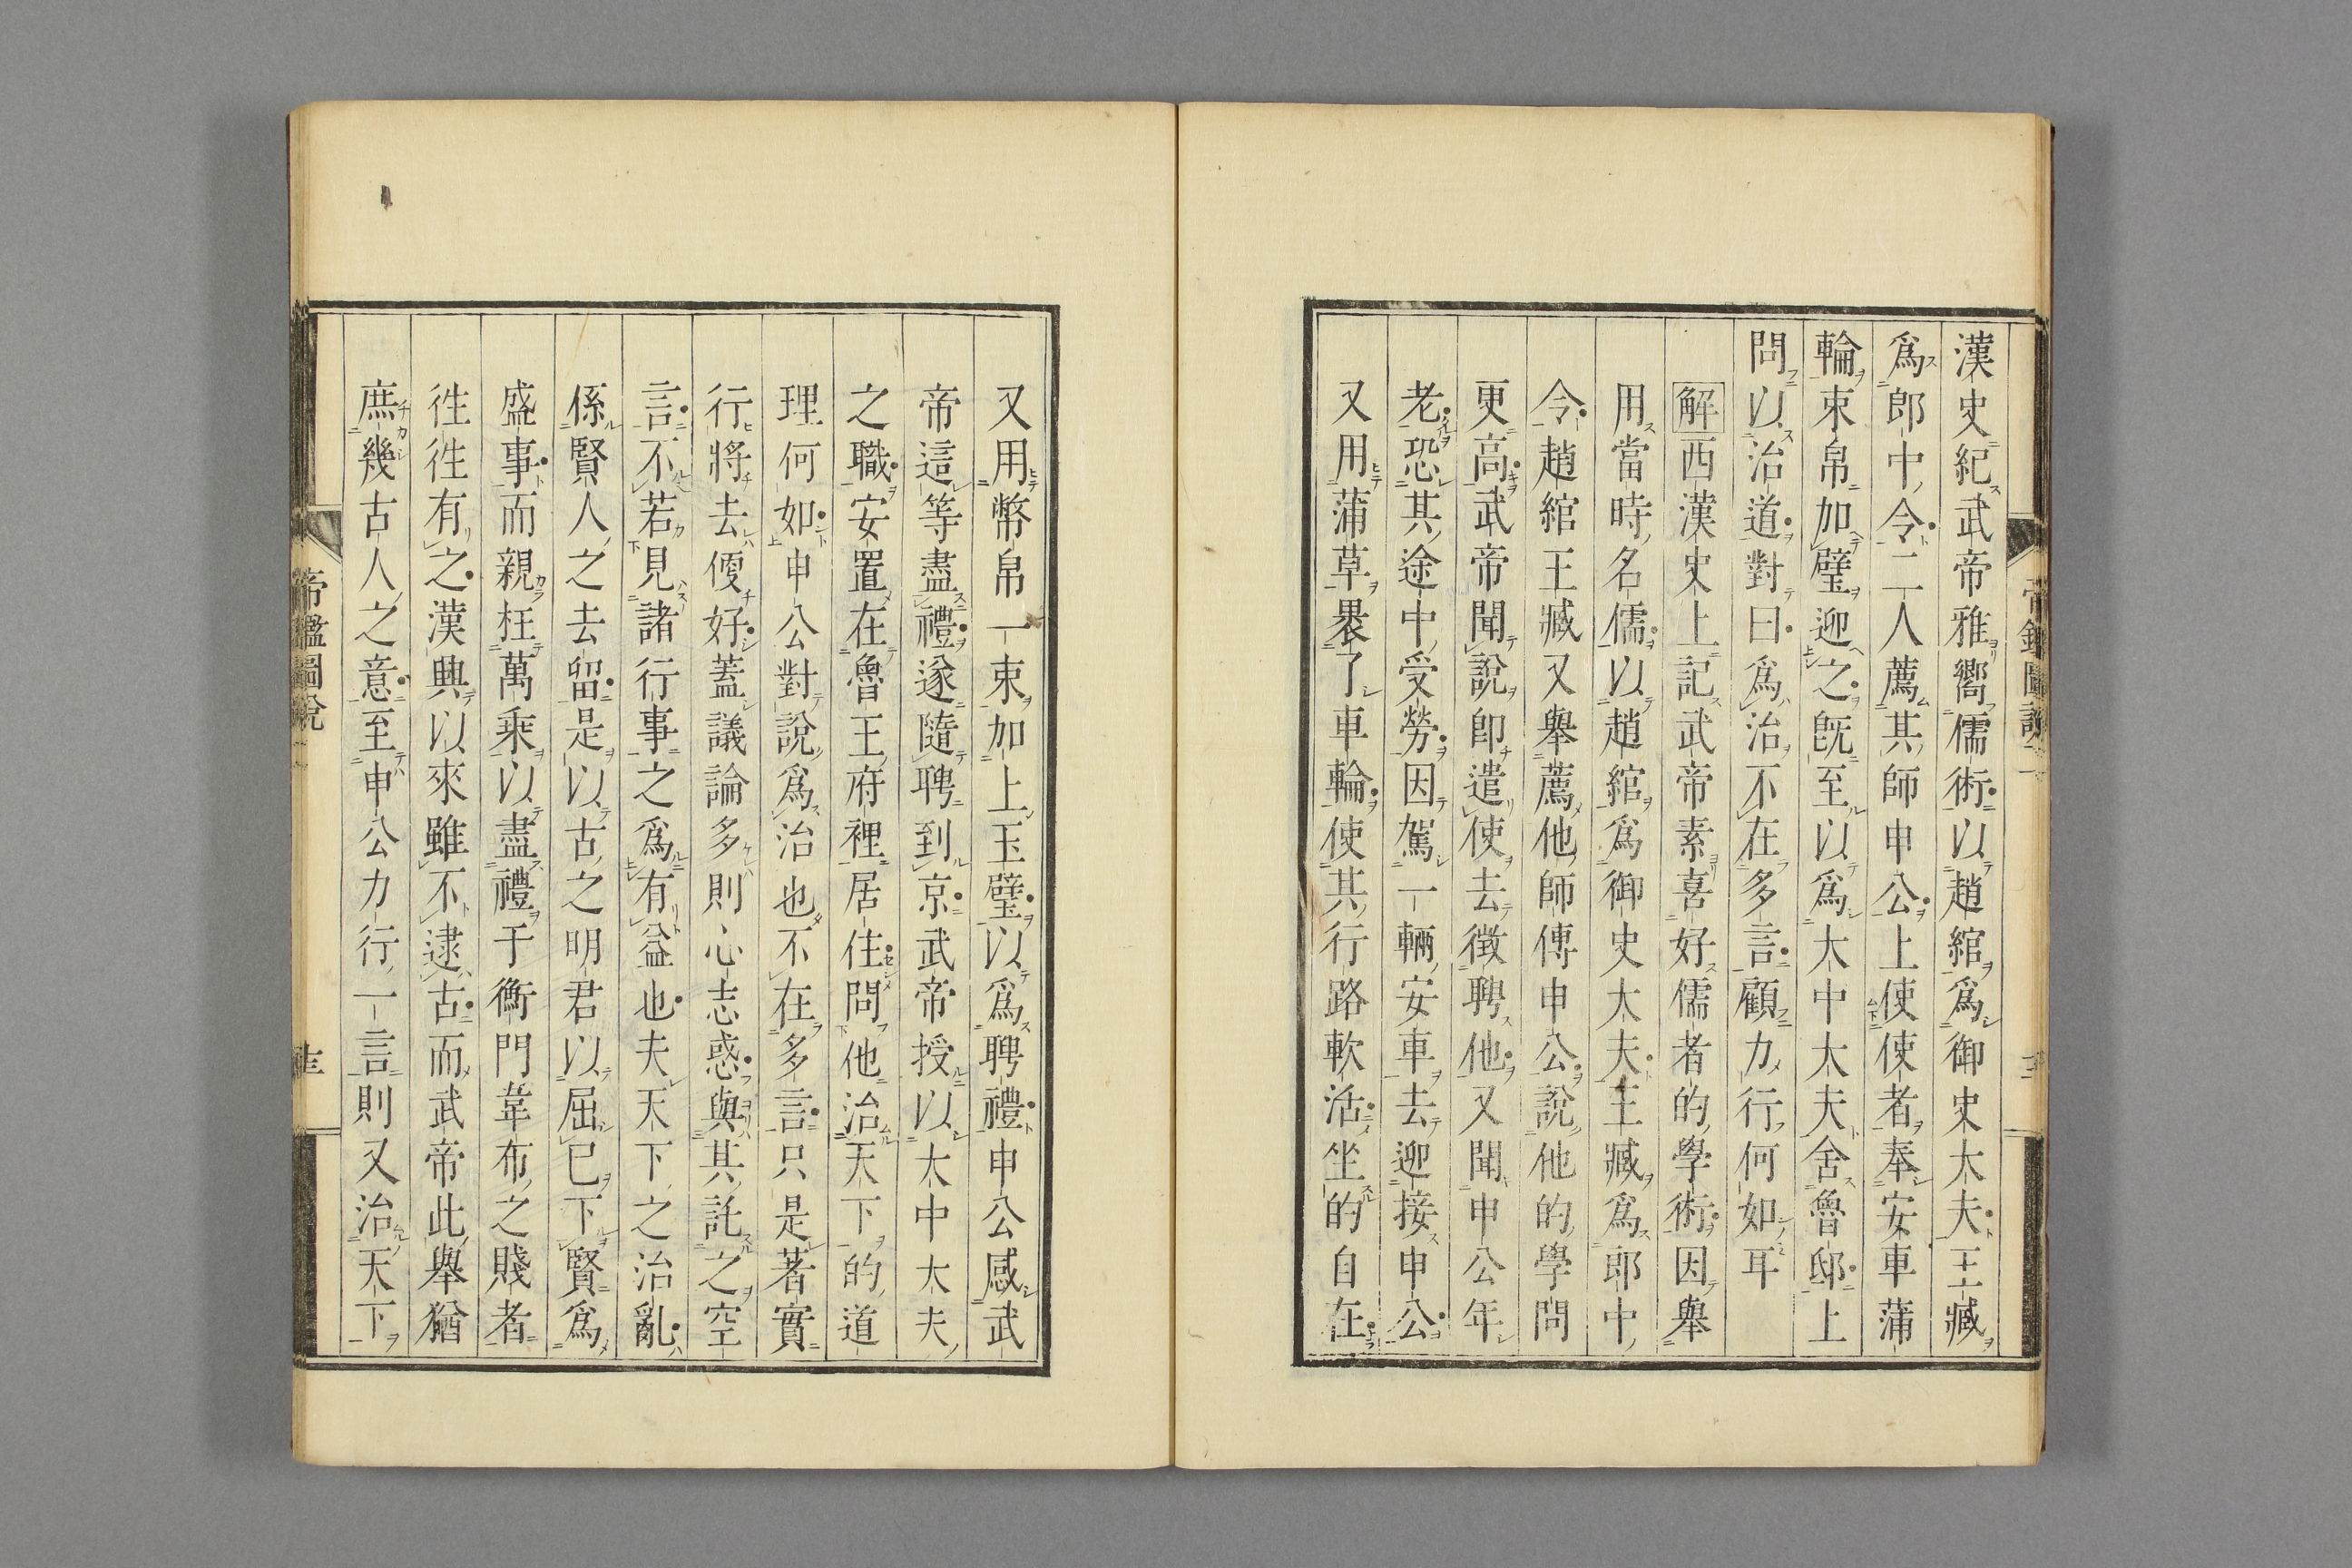 漢史紀武帝雅嚮儒術以趙綰爲御史大夫王臧
爲郎中令二人薦其師申公上使使者奉安車蒲
輪束帛加璧迎之既至以爲大中大夫舍魯邸上
問以治道對曰爲治不在多言顧力行何如耳
解西漢史上記武帝素喜好儒者的學術因舉
用當時名儒以趙綰爲御史大夫王臧爲郎中
令趙綰王臧又舉薦他師傅申公說他的學問
更高武帝聞說即遣使去徵聘他又聞申公年
老恐其途中受勞因駕一輛安車去迎接申公
又用蒲草褁了車輪使其行路軟活坐的自在
又用幣帛一束加上玉璧以爲聘禮申公感武
帝這等盡禮遂隨聘到京武帝授以大中大夫
之職安置在魯王府裡居住問他治天下的道
理何如申公對說爲治也不在多言只是著實
行將去便好蓋議論多則心志惑與其託之空
言不若見諸行事之爲有益也夫天下之治亂
係賢人之去留是以古之明君以屈己下賢爲
盛事而親枉萬乘以盡禮于衡門韋布之賤者
徃徃有之漢興以來雖不逮古而武帝此舉猶
庶幾古人之意至申公力行一言則又治天下
帝鑑圖說